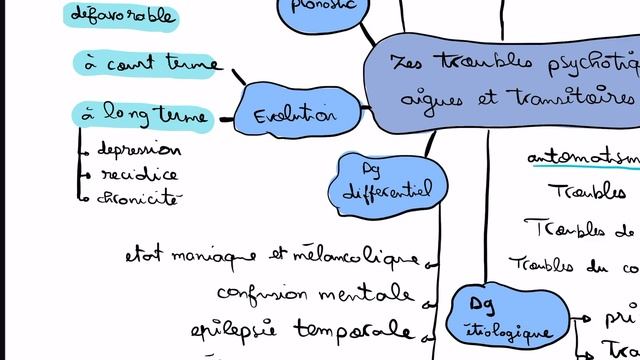 défavorable
pronostic
à court terme
à long terme
depression
recidice
chronicité
Evolution
Les troubles
aigues et transitoires
Dg
différentiel
Troubles
Troubles de
Troubles du
etat maniaque et mélancolique
confusion mentale
epilepsie temporale
Dg
étiologique